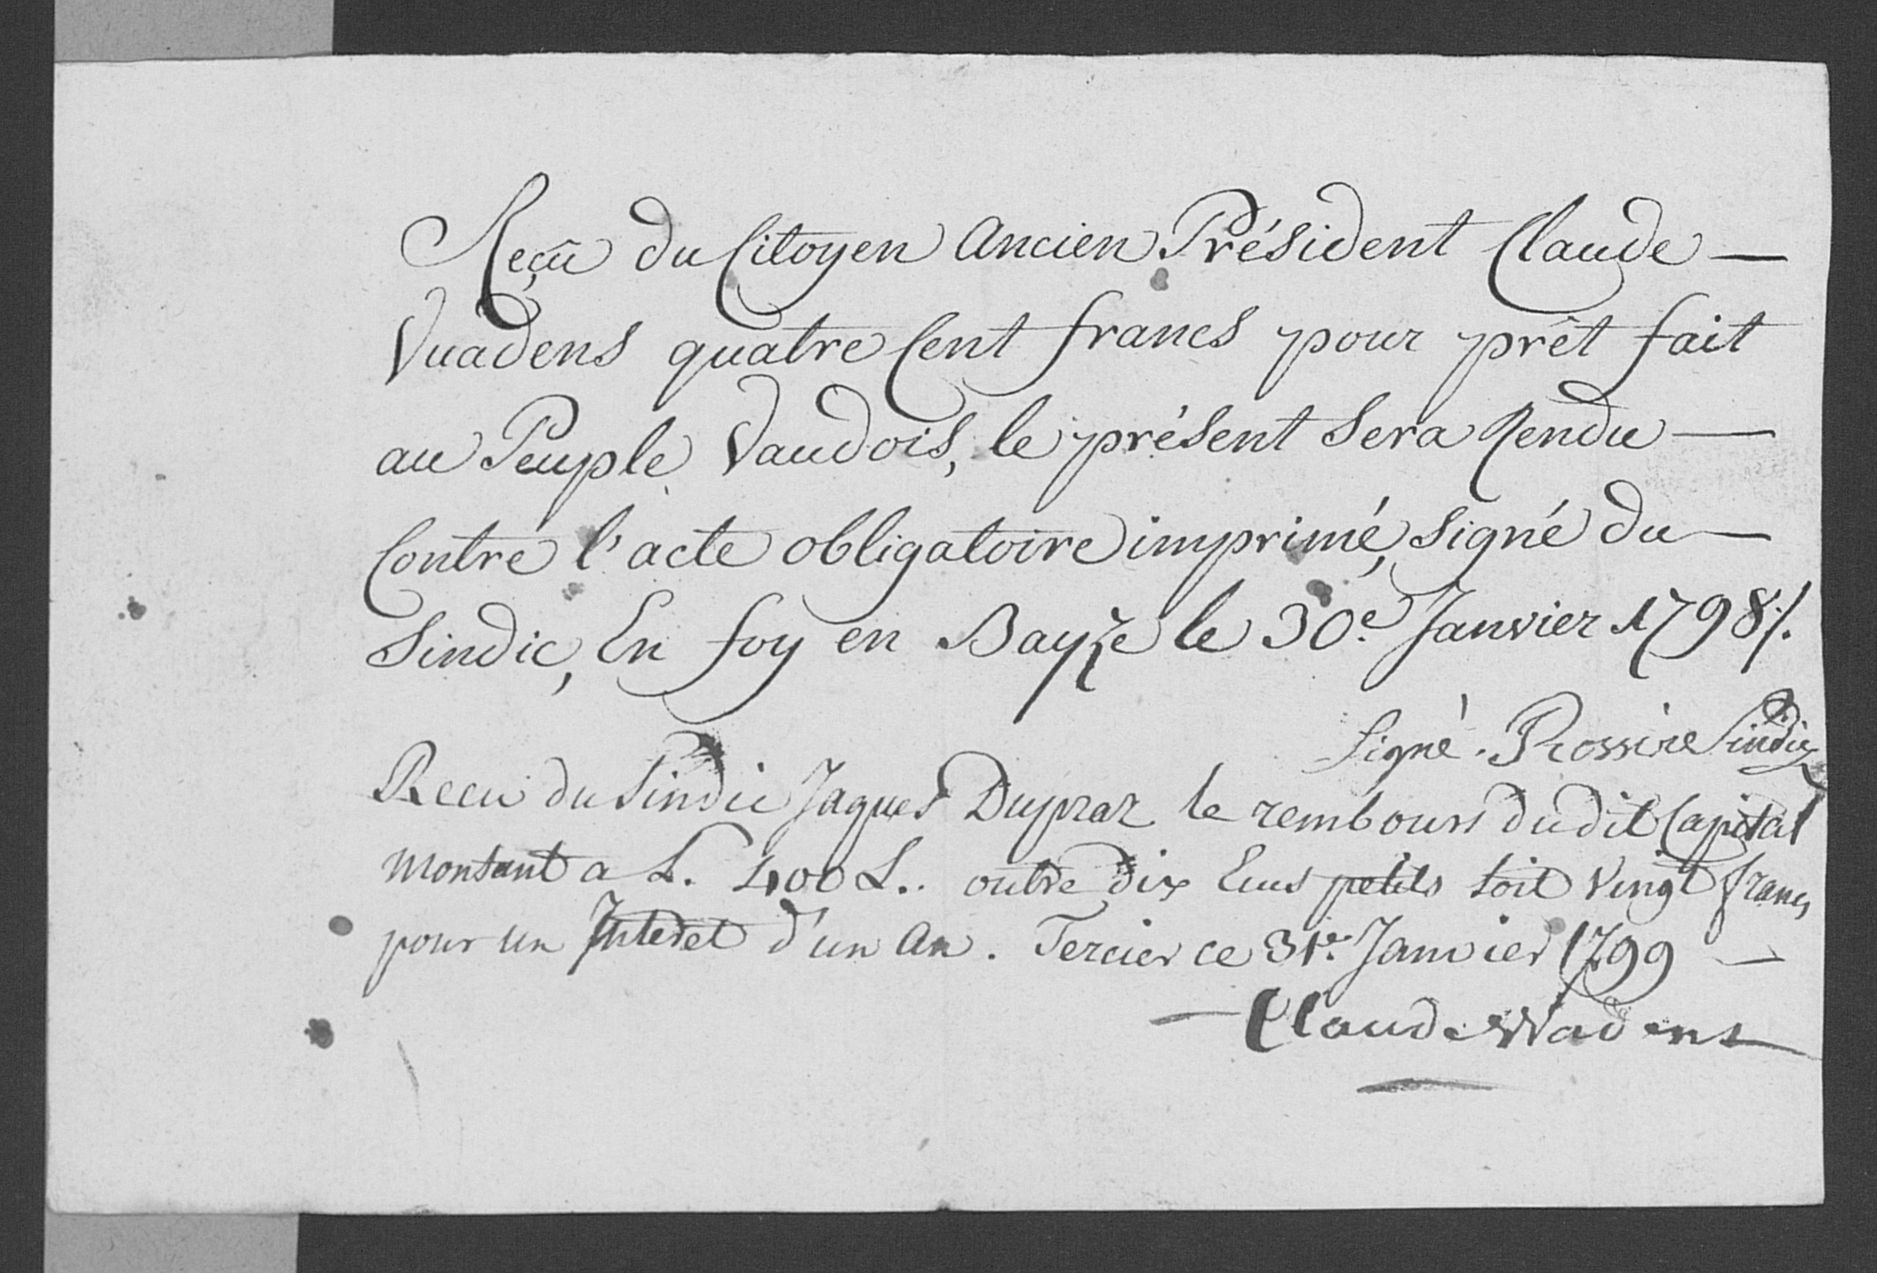 Reçû du Citoyen Ancien Président Claude —
Vuadens quatre Cent francs pour prêt fait
au Peuple Vaudois, le présent Sera Rendu —
Contre l'acte obligatoire imprimé, Signé du —
Sindic, En foy en Bayze le 30.e Janvier 1798 ./.
Signé. Rossire Sindic
Recu du Sindic Jaques Dupraz le rembours dudit Capital
montant a L. 400 L.. outre dix Ecus petits soit Vingt francs
pour un Interet d'un An. Tercier ce 31.e Janvier 1799 —
— Claude Wadens